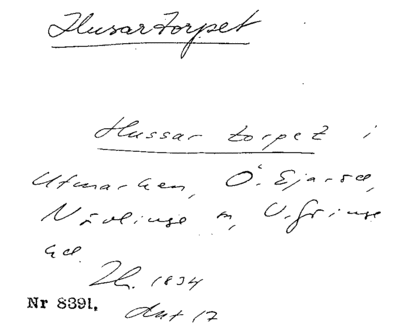 Husartorpet
Hussar torpet i
Utmarken, Ö. Ejarsd,
Nävlinge sn, V. Göinge
hd.
Lh. 1834
Nr 8391.
akt 17